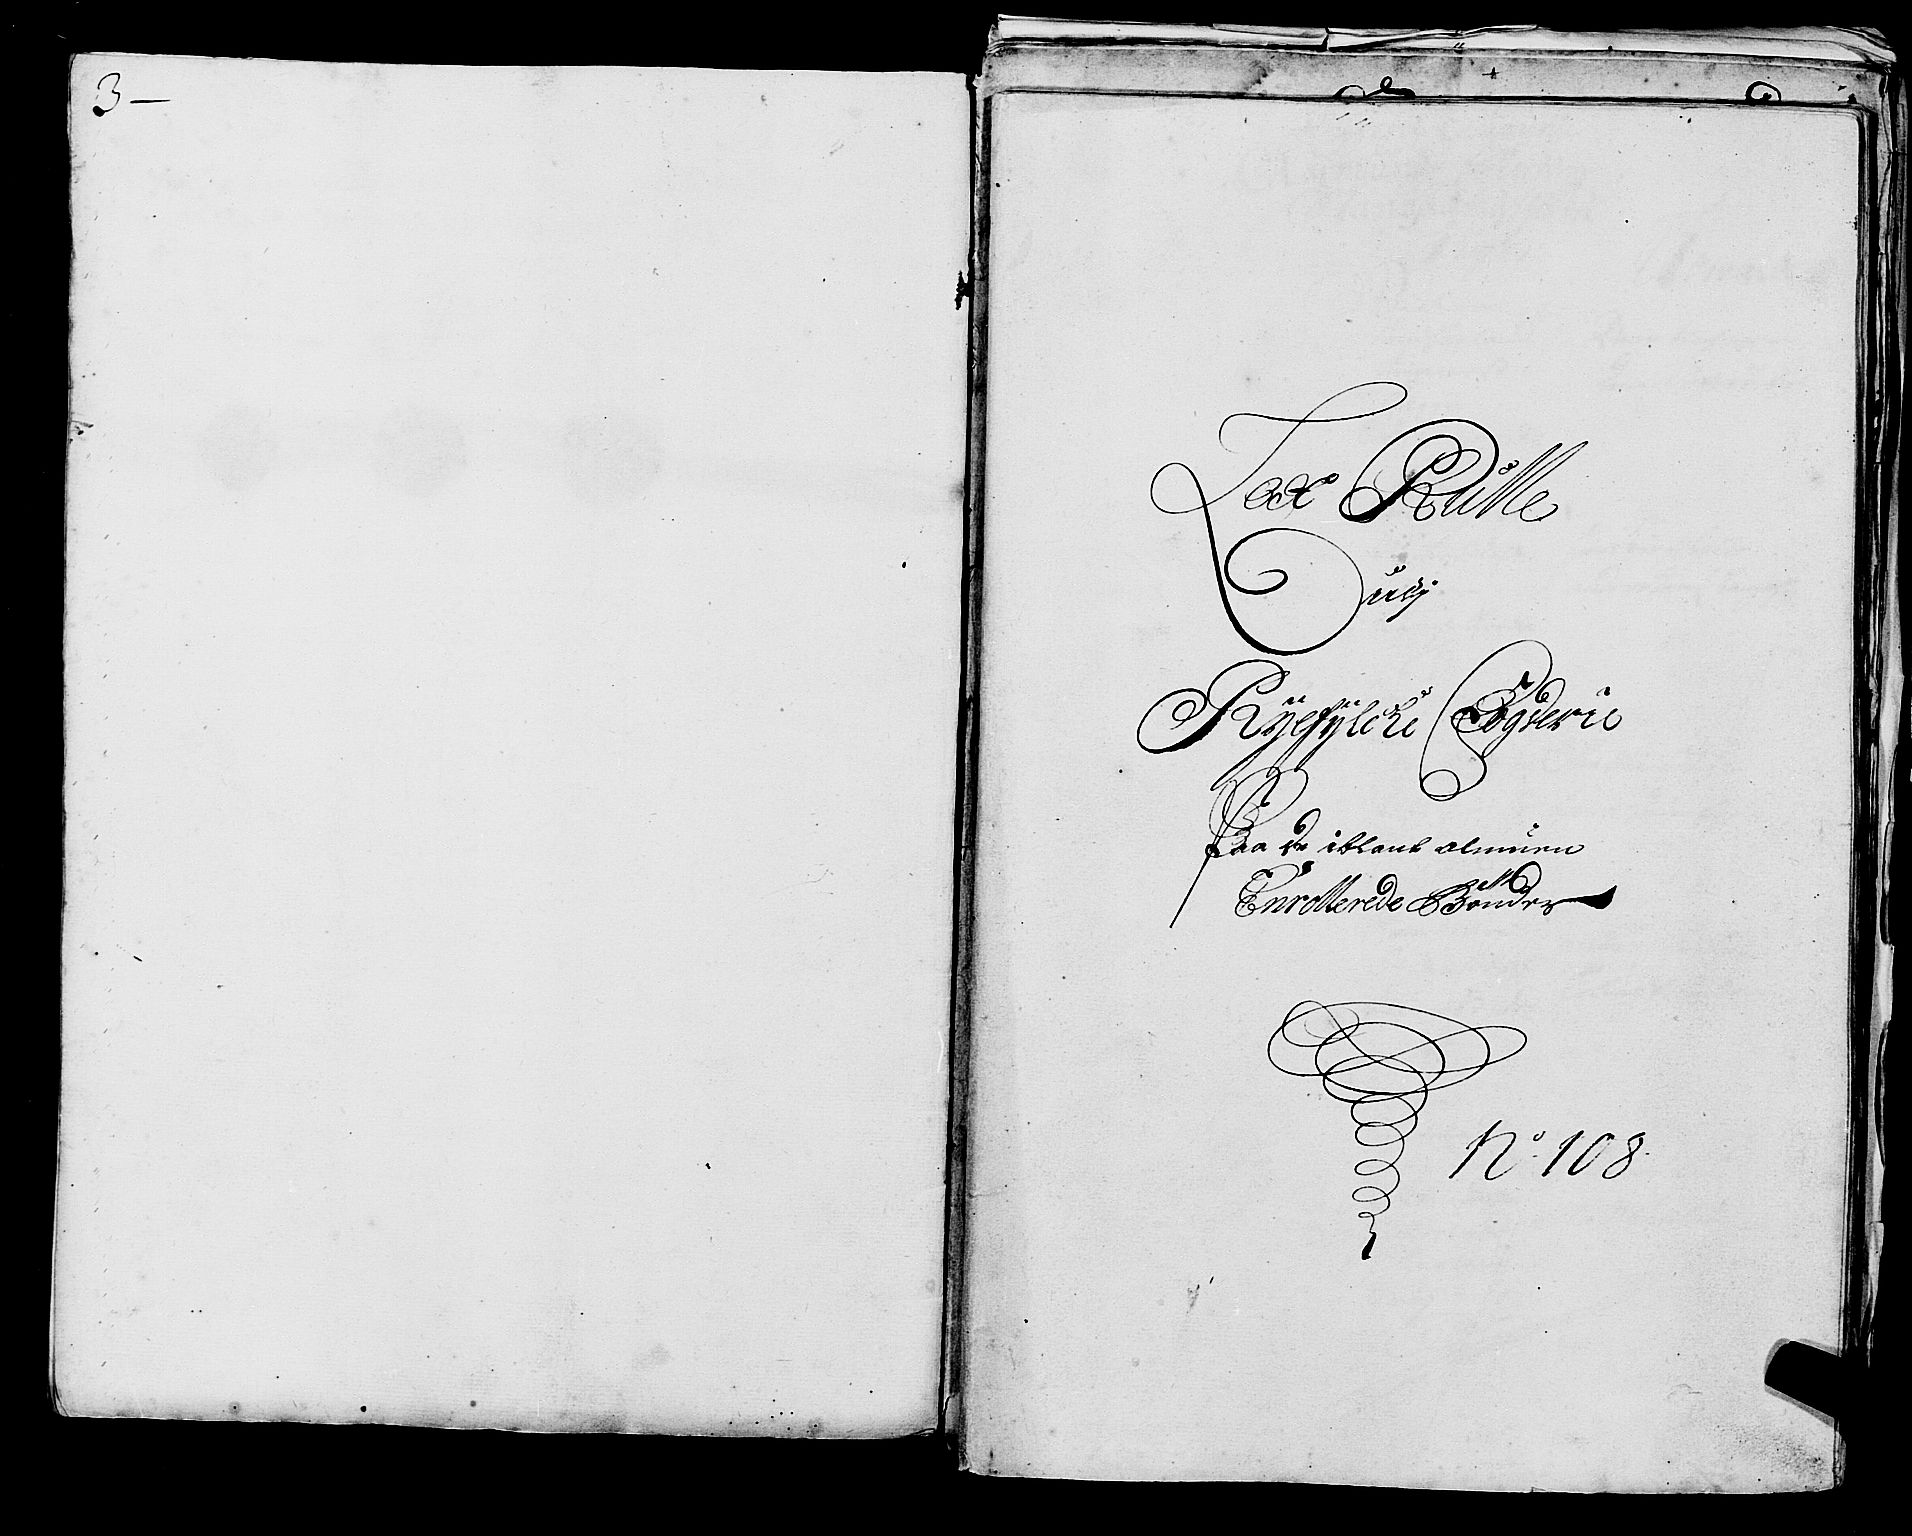 3 –
Lax Rulle
Udj
Ryefylcke Fogderie
Paa de iblant almuen
Enrollerede Bønder
No. 108.